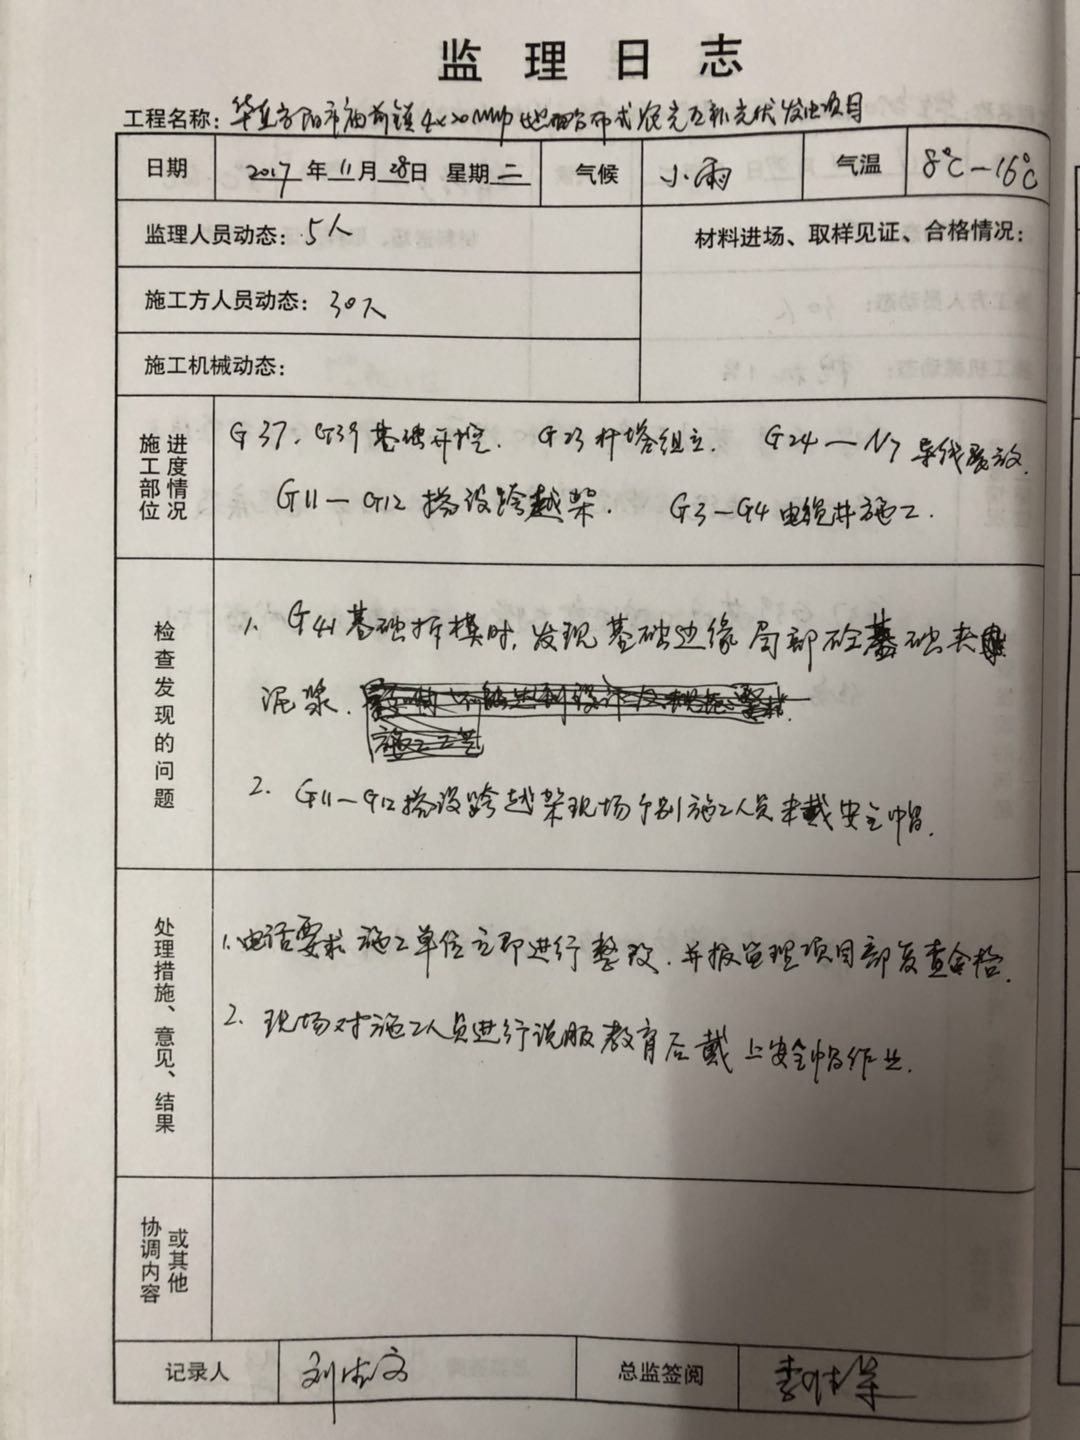 监理日志
工程名称: 市 镇4×20MWp 式农光互补光伏发电项目
日期 2017年11月28日 星期二 气候 小雨 气温 8℃-16℃
监理人员动态: 5人 材料进场、取样见证、合格情况:
施工方人员动态: 30人
施工机械动态:
施工部位进度情况
G37、G39基础开挖. G23杆塔组立. G24-N7导线展放.
G11-G12搭设跨越架. G3-G4电缆井施工.
检查发现的问题
1. G41基础拆模时,发现基础边缘局部砼基础夹
泥浆.
2. G11-G12搭设跨越架现场个别施工人员未戴安全帽.
处理措施、意见、结果
1.电话要求施工单位立即进行整改.并报监理项目部复查合格.
2. 现场对施工人员进行说服教育后戴上安全帽作业.
协调内容或其他
记录人 刘 文 总监签阅 李